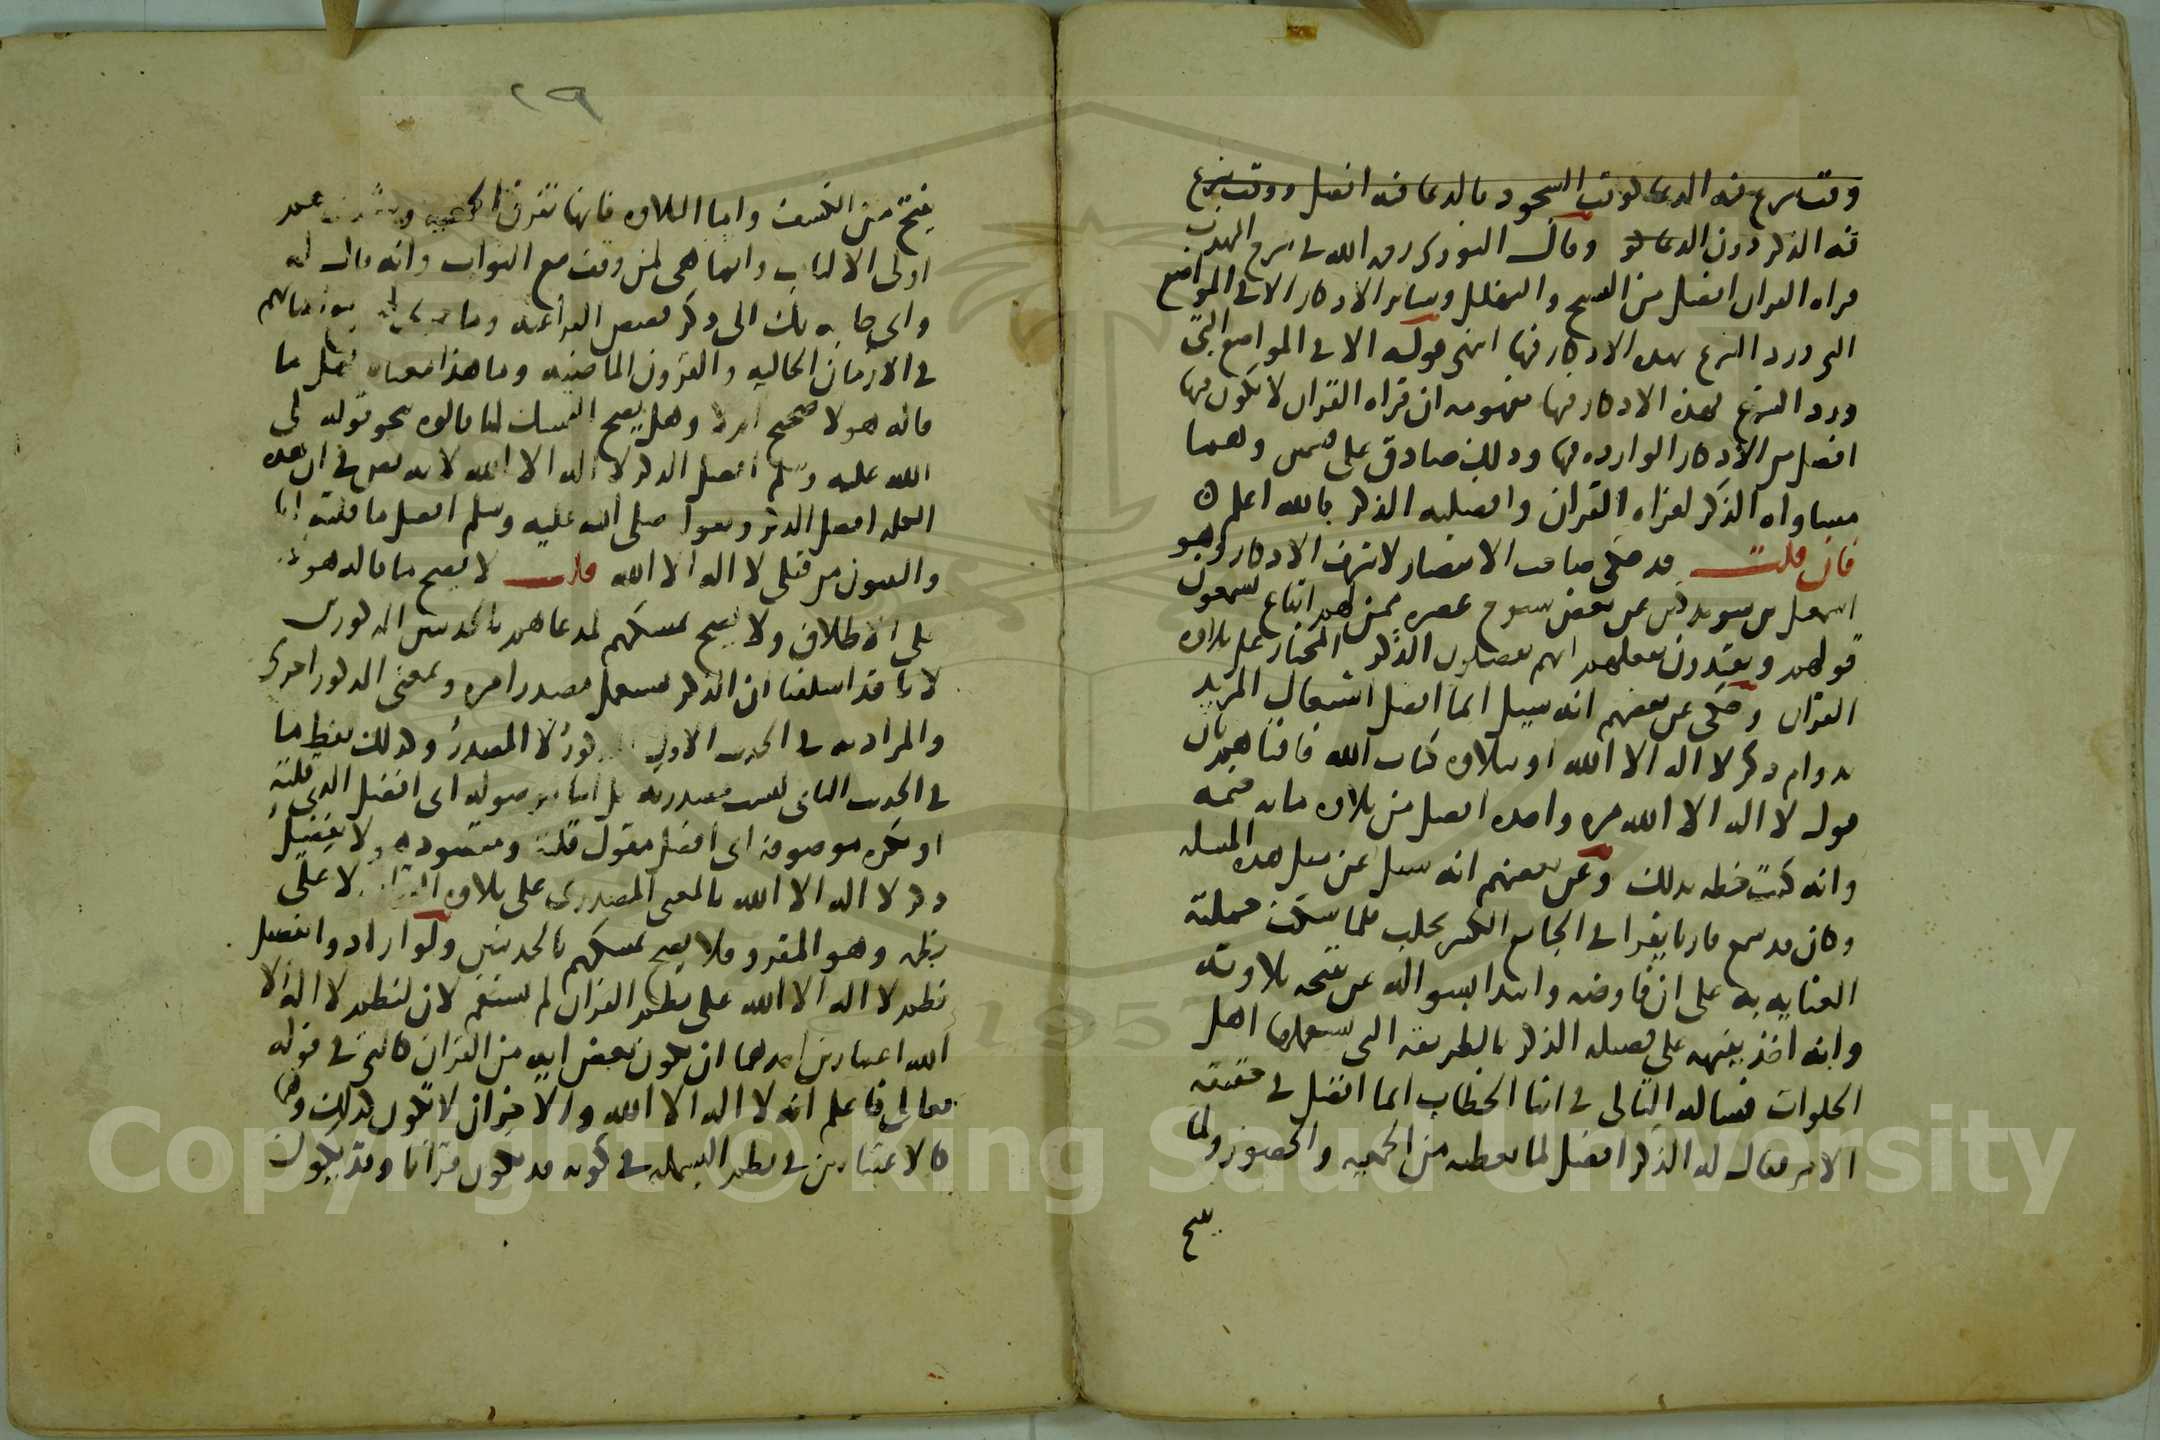 وقت شرع فيه الدعا كوقت السجود فالدعا فيه افضل ووقت شرع
فيه الذكر دون الدعا وقال النووى رحمه الله فى شرح المهذب
قراه القران افضل من التسبيح والتهليل وساير الاذكار الا فى المواضع
التى ورد الشرع بهذه الاذكار فيها انتهى قوله الا فى المواضع التى
ورد الشرع بهذه الاذكار فيها مفهومه ان قراه القران لا تكون فيها
افضل من الاذكار الوارده فيها وذلك صادق على قسمين وهما
مساواه الذكر لقراه القران وافضليه الذكر فالله اعلم
فان قلت قد حكى صاحب الانتصار لاشرف الاذكار وهو
اسمعيل بن سودكين عن بعض شيوخ عصره ممن لهم اتباع يسمعون
قولهم ويقتدون بفعلهم انهم يفضلون الذكر المختار على تلاوه
القران وحكى عن بعضهم انه سيل ايما افضل اشتغال المريد
بدوام ذكر لا اله الا الله او بتلاوه كتاب الله فافتاهم بان
قول لا اله الا الله مره واحده افضل من تلاوه مايه ختمه
وانه كتب خطه بذلك وعن بعضهم انه سيل عن مثل هذه المسله
وكان قد سمع قاريا يقرا فى الجامع الكبير بحلب فلما سكت حملته
العنايه به على ان فاوضه وابتدا بسواله عن نتيجه تلاوته
وانه اخذ ينبهه على فضيله الذكر بالطريقه التى يستعملها اهل
الخلوات فساله التالى فى اثنا الخطاب ايما افضل فى حقيقه
الامر فقال له الذكر افضل لما يعطيه من الجمعيه والحضور ولما
يفتح
٢٩
يفتح من الكشف واما التلاوه فانها تفرق الجمعيه عند
اولى الالباب وانما هى لمن وقف مع الثواب وانه قال له
واى حاجه بك الى ذكر قصص الفراعنه وما
فى الازمان الخاليه والقرون الماضيه وما هذا معناه فهل ما
قاله هولا صحيح ام لا وهل يصح التمسك لما قالوه بنحو قوله صلى
الله عليه وسلم افضل الذكر لا اله الا الله لانه نص فى ان هذه
الكلمه افضل الذكر وبقوله صلى الله عليه وسلم افضل ما قلته انا
والنبيون من قبلى لا اله الا الله قلت لا يصح ما قاله هولا
على الاطلاق ولا يصح تمسكهم لمدعاهم بالحديثين المذكورين
لانا قد اسلفنا ان الذكر يستعمل مصدرا مره وبمعنى المذكور اخرى
والمراد به فى الحديث الاول المذكور لا المصدر وكذلك لفظ ما
فى الحديث الثانى ليست مصدريه بل اما موصوله اى افضل الذى قلته
او نكره موصوفه اى افضل مقول قلته ومقصودهم ولا تفضيل
ذكر لا اله الا الله بالمعنى المصدرى على تلاوه القران لا على
نظمه وهو المقرو فلا يصح تمسكهم بالحديثين ولو ارادوا تفضيل
نظم لا اله الا الله على نظم القران لم يستقم لان لنظم لا اله الا
الله اعتبارين احدهما ان يكون بعض ايه من القران كالتى فى قوله
تعالى فاعلم انه لا اله الا الله والاخر ان لا تكون كذلك وهما
كالاعتبارين فى نظم البسمله فى كونه قد يكون قرانا وقد يكون
Copyright © King Saud University
1957